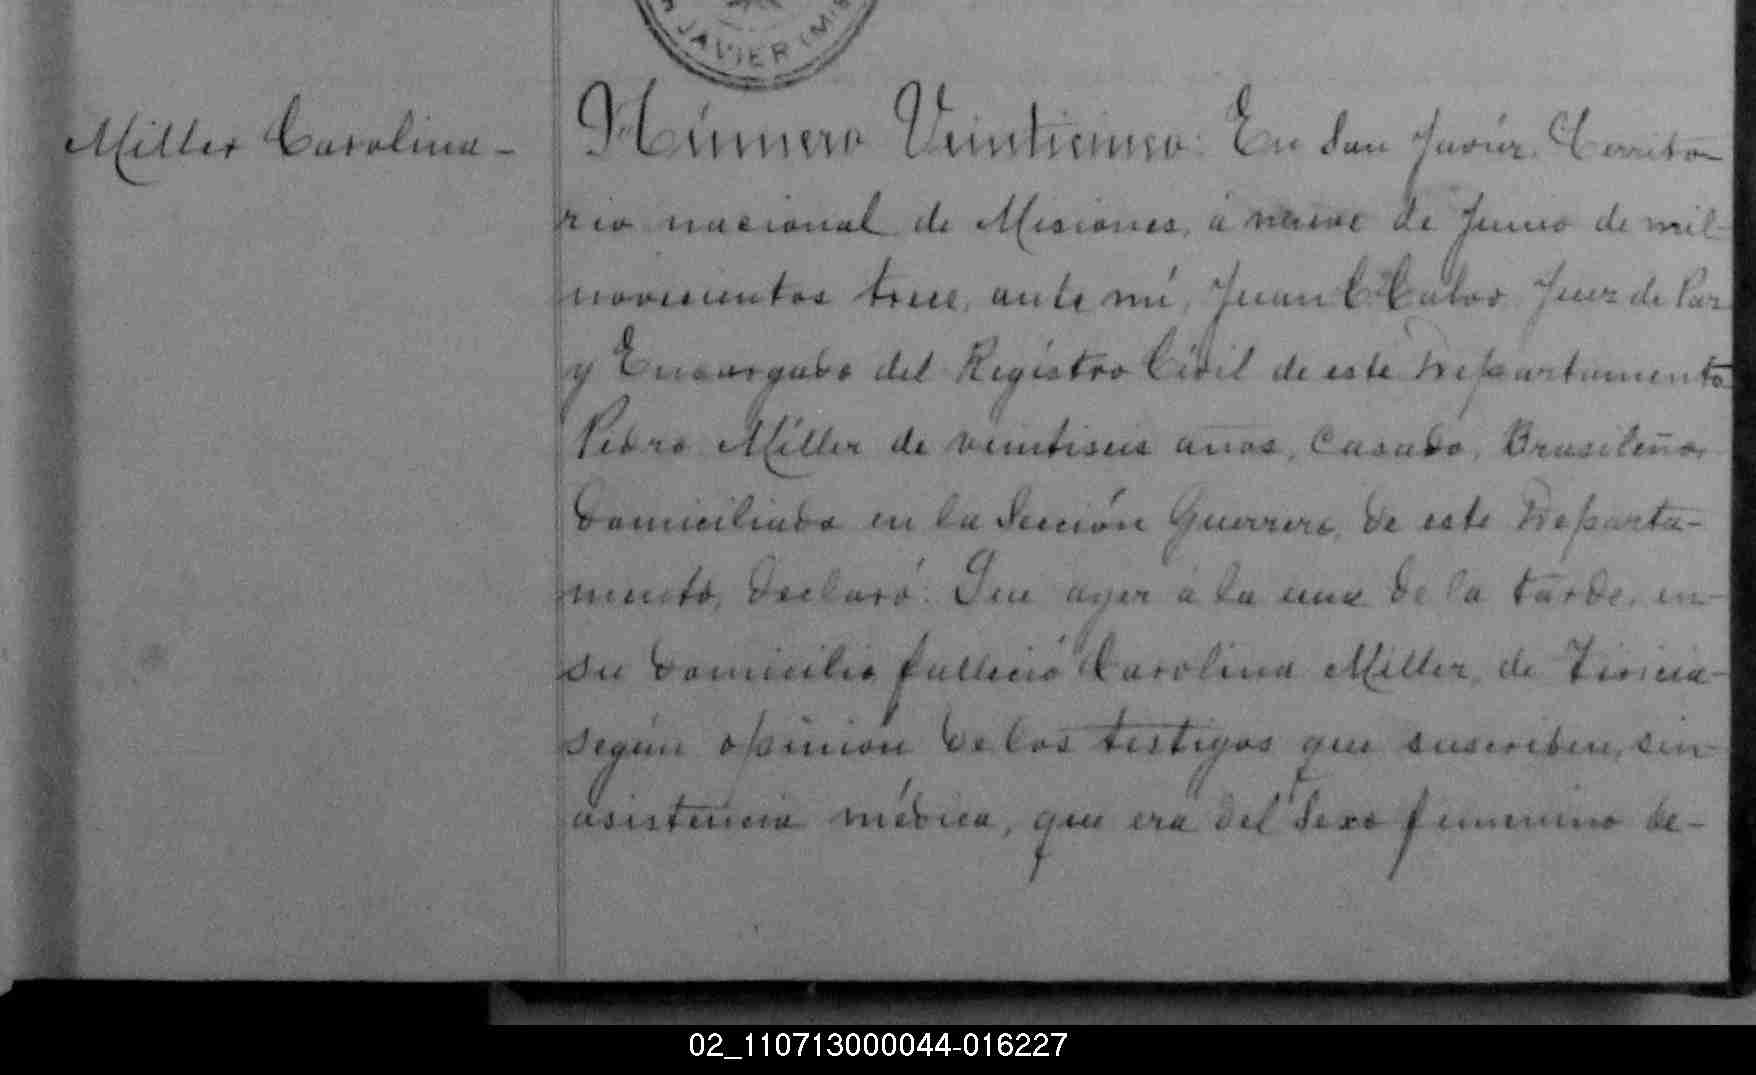 JAVIER (MIS
Miller Carolina-
Número Veinticinco: En San Javier, Territo-
rio nacional de Misiones, á nueve de Junio de mil
novecientos trece, ante mí, Juan C. Calvo Juez de Paz
y Encargado del Registro Civil de este Departamento
Pedro Miller de veintiseis años, Casado, Brasileño,
domiciliado en la Sección Guerrero, de este Departa-
mento, declaró: Que ayer á la una de la tarde, en
su domicilio falleció Carolina Miller, de Tisicia
según opinión de los testigos que suscriben, sin
asistencia médica, que era del Sexo femenino de-
02_110713000044-016227